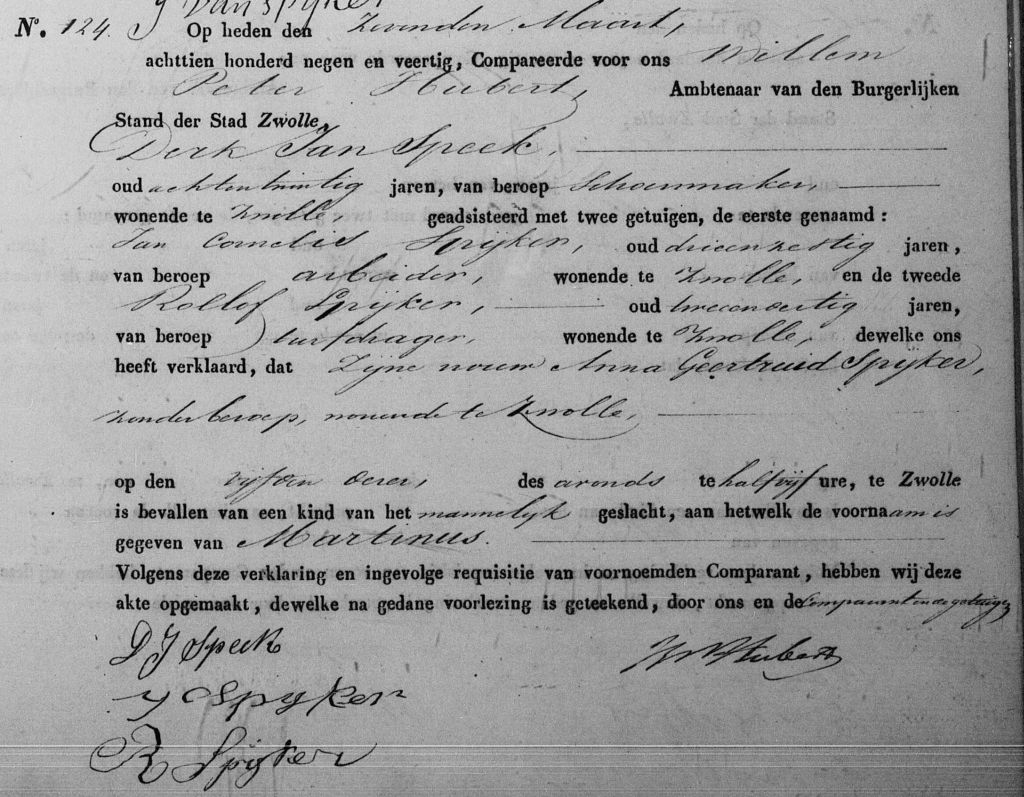 J van Spyker
N.o 124. Op heden den Zevenden Maart,
achttien honderd negen en veertig, Compareerde voor ons Willem
Peter Hubert, Ambtenaar van den Burgerlijken
Stand der Stad Zwolle,
Derk Jan Speek,
oud achtentwintig jaren, van beroep Schoenmaker,
wonende te Zwolle, geadsisteerd met twee getuigen, de eerste genaamd:
Jan Cornelis Spijker, oud drieenzestig jaren,
van beroep arbeider, wonende te Zwolle, en de tweede
Rollof Spijker, oud tweeenveertig jaren,
van beroep turfdrager, wonende te Zwolle, dewelke ons
heeft verklaard, dat Zijne vrouw Anna Geertruid Spijker,
zonder beroep, wonende te Zwolle,
op den vijfden dezer, des avonds te half vijf ure, te Zwolle
is bevallen van een kind van het mannelyk geslacht, aan hetwelk de voornaam is
gegeven van Martinus.
Volgens deze verklaring en ingevolge requisitie van voornoemden Comparant, hebben wij deze
akte opgemaakt, dewelke na gedane voorlezing is geteekend, door ons en de Comparant en de getuigen
D J Speek
WPHubert
J Spyker
R Spijker